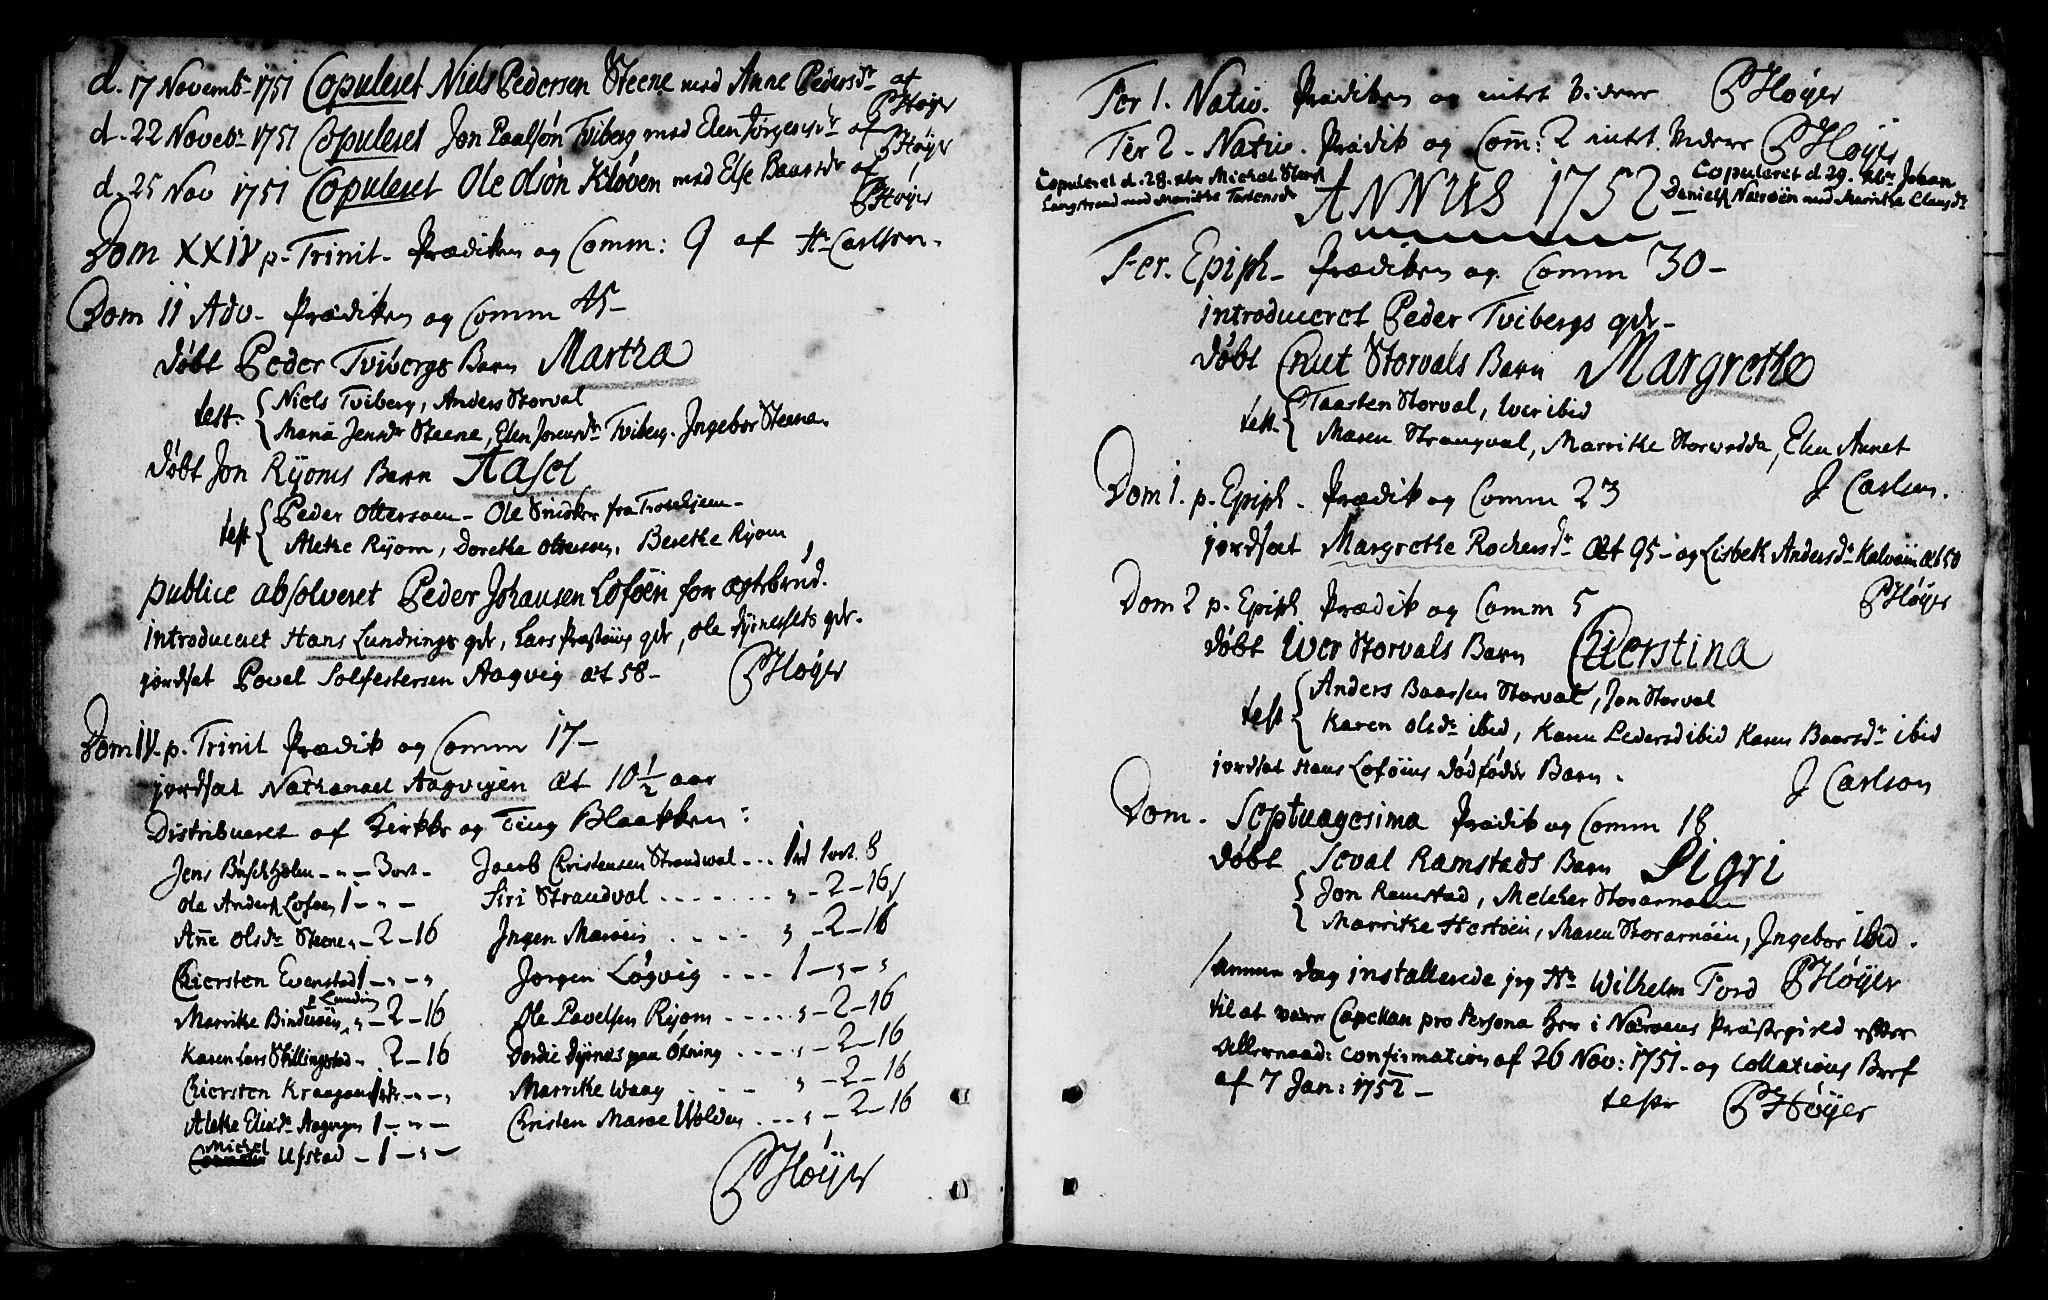 d. 17 Novembr 1751 Copuleret Niels Pedersen Steene med Anne Pedersdr af
PHøÿer
d. 22 Novebr 1751 Copuleret Jon Paalsøn Tviberg med Elen Jørgensdr af
PHøÿer
d. 25 Nov 1751 Copuleret Ole Olsøn Kløven med Else Baarsdr af
PHøÿer
Dom XXIV p. Trinit. Prædiken og Comm: 9 af Hr Carlsen.
Dom II Adv. Prædiken og Comm 45-
døbt Peder Tvibergs Barn Martha
test. Niels Tviberg, Anders Storval
Maria Jensdr Steene, Elen Jørensdr Tviberg. Ingebor Steene
døbt Jon Rÿoms Barn Aasel
test Peder Ottersøen - Ole Snidker fra Trondhjem-
Alethe Rÿom, Dorethe Ottersøen, Berethe Rÿom
publice absolveret Peder Johansen Loføen for ægtebrud.
introduceret Hans Lundrings qdr, Lars Præstøiis qdr, Ole Dÿrnessets qdr.
jordsat Povel Solfestersen Aagvig æt 58-
PHøÿer
Dom IV p. Trinit Prædik og Comm 17-
jordsat Nathanael Aagvigen æt 10 1/2 aar
Distribueret af Kirke og Ting Blaakken:
Jens Buschholm - „ - 3ort-
Ole Anders Lofoen 1 - „ -
Añe Olsdr Steene „ - 2 - 16
Chiersten Evenstad 1 - „ - „
Marrike Bindesøen i Lunding „ - 2 - 16
Karen Lars Skillingstad - 2 - 16
Chiersten Kraagsund 1 - „ - „
Alethe Eliasdr Aagvigen 1 - „ - „
Michel Ufstad - 1 - „ -
Jacob Christensen Strandval ... 1rd 1ort. 8
Siri Strandval ....... „ - 2 - 16
Ingen Marøiis .... „ - 2 - 16
Jørgen Løgvig ... 1 - „ - „
Ole Pavelsen Rÿom ..... „ - 2 - 16
Dordie Dÿrnæs paa Øxning .... „ - 2 - 16
Marrike Waag .... „ - 2 - 16
Christen Maroe Wolden .... „ - 2 - 16
PHøÿer
Fer 1. Nativ. Prædiken og intet videre PHøÿer
Fer 2. Nativ. Prædik og Com̃: 2 intet videre PHøÿer
Copuleret d. 28. xbr Michel Størch
Langstrand med Marrithe Tostensdr
ANNUS 1752
Copuleret d 29. xbr Johan
Daniels Nærøen med Marrithe Clausdr
Fer. Epiph. Prædiken og Comm 30-
introduceret Peder Tvibergs qdr-
døbt Cnut Storvals Barn Margrethe
test Taasten Storval, Iver ibid
Maren Strangval, Marrithe Storvedda, Elen Annet
J Carlsen.
Dom 1. p. Epiph. Prædik og Comm 23
jordsat Margrethe Rochersdr æt 95 - og Lisbeth Andersdr Kalvøiin æt 50
PHøÿer
Dom 2 p. Epiph Prædik og Comm 5
døbt Iver Storvals Barn Chierstina
test Anders Baarsen Storval, Jon Storval
Karen Olsdr ibid, Karen Pedersd ibid Karen Baarsdr ibid
jordsat Hans Loføiis dødfødde Barn.
J Carlson
Dom. Septuagesima Prædik og Comm 18
døbt Seval Ramstads Barn Sigri
Jon Ramstad, Melcher Storarnøen
Marrithe Hestøen, Maren Storarnøen, Ingebor ibid.
samme dag installerede jeg Hr Wilhelm Tord PHøÿer
til at være Capellan pro Persona her i Nærøens Præstegield efter
Allernaad: confirmation af 26 Nov: 1751 - og Collations Bref
af 7 Jan: 1752 -
teste PHøÿer